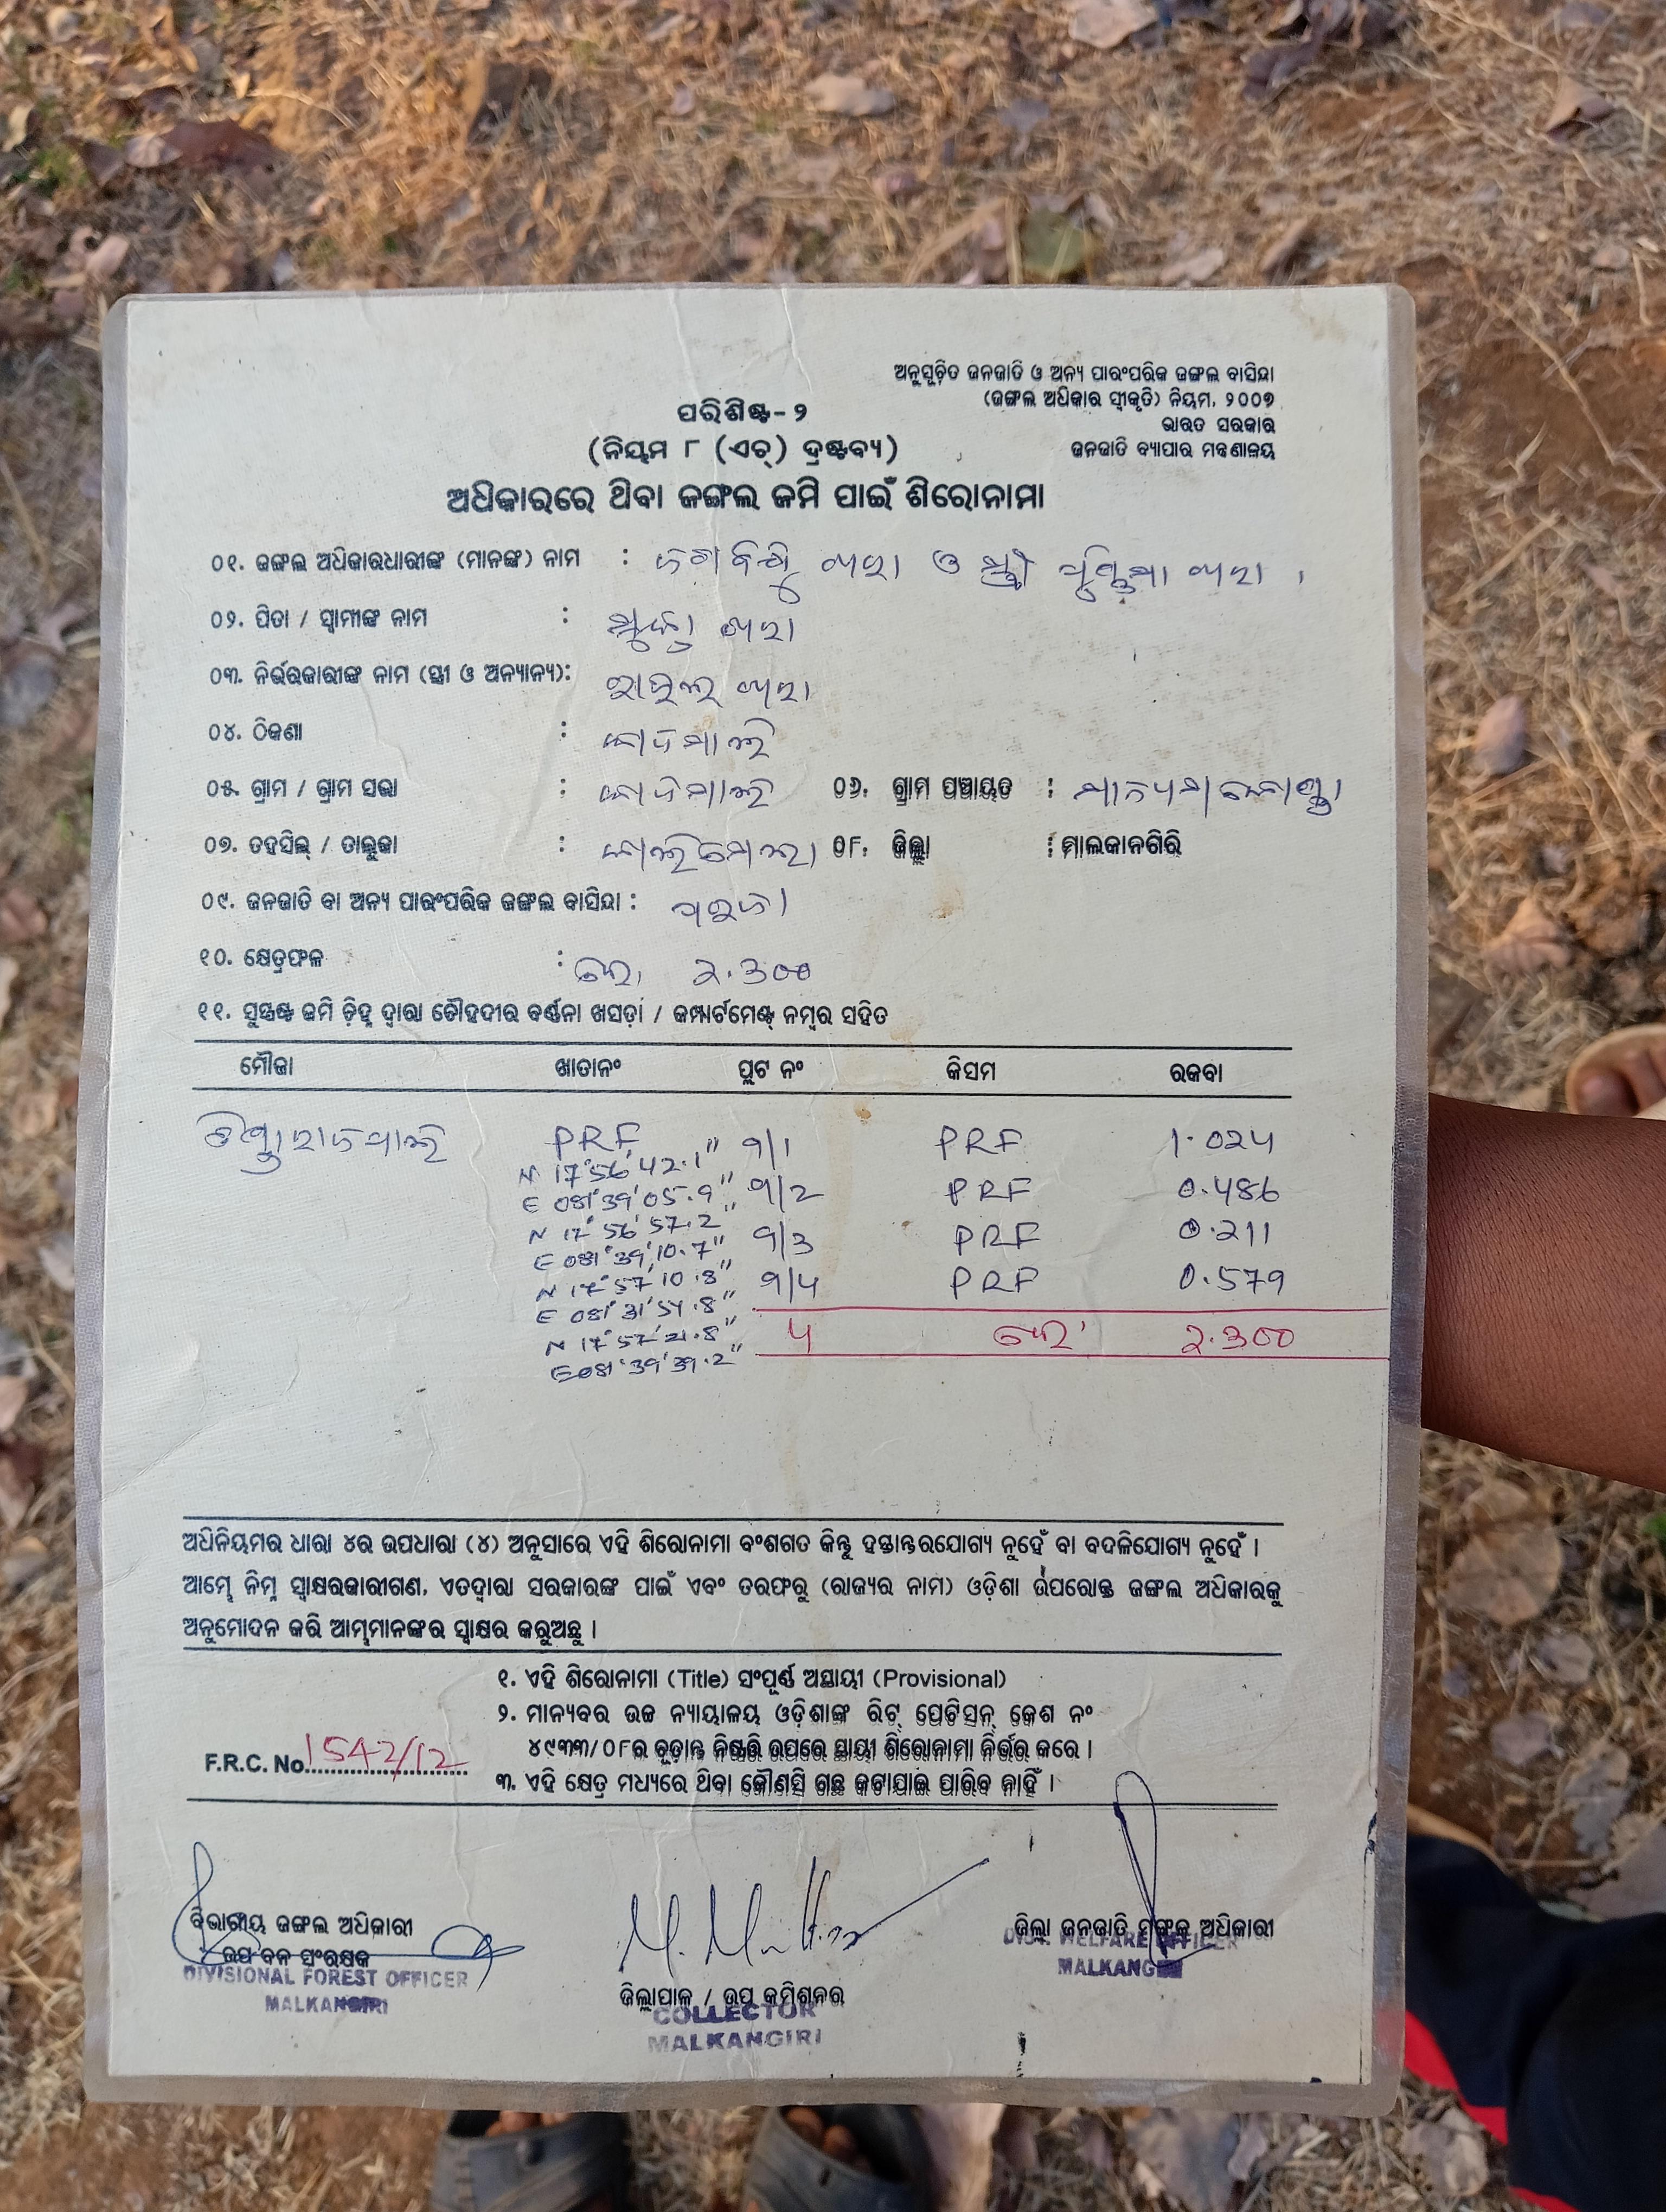 ଅନୁସୂଚିତ ଜନଜାତି ଓ ଅନ୍ୟ ପାରଂପରିକ ଜଙ୍ଗଲ ବାସିନ୍ଦା
(ଜଙ୍ଗଲ ଅଧିକାର ସ୍ୱୀକୃତି) ନିୟମ, ୨୦୦୭
ଭାରତ ସରକାର
ଜନଜାତି ବ୍ୟାପାର ମନ୍ତ୍ରଣାଳୟ
ପରିଶିଷ୍ଟ-୨
(ନିୟମ ୮ (ଏଚ୍) ଦ୍ରଷ୍ଟବ୍ୟ)
ଅଧିକାରରେ ଥିବା ଜଙ୍ଗଲ ଜମି ପାଇଁ ଶିରୋନାମା
୦୧. ଜଙ୍ଗଲ ଅଧିକାରଧାରୀଙ୍କ (ମାନଙ୍କ) ନାମ : ଖରା ଓ ସ୍ତ୍ରୀ ପୂର୍ଣ୍ଣିମା ଖରା ।
୦୨. ପିତା / ସ୍ୱାମୀଙ୍କ ନାମ : ଖରା
୦୩. ନିର୍ଭରକାରୀଙ୍କ ନାମ (ସ୍ତ୍ରୀ ଓ ଅନ୍ୟାନ୍ୟ): ରାହୁଲ ଖରା
୦୪. ଠିକଣା :
୦୫. ଗ୍ରାମ / ଗ୍ରାମ ସଭା : ୦୬. ଗ୍ରାମ ପଞ୍ଚାୟତ :
୦୭. ତହସିଲ୍ / ତାଲୁକା : କାଲିମେଲା ୦୮. ଜିଲ୍ଲା : ମାଲକାନଗିରି
୦୯. ଜନଜାତି ବା ଅନ୍ୟ ପାରଂପରିକ ଜଙ୍ଗଲ ବାସିନ୍ଦା : ପରଜା
୧୦. କ୍ଷେତ୍ରଫଳ : ହେ, 2.300
୧୧. ସୁସ୍ପଷ୍ଟ ଜମି ଚିହ୍ନ ଦ୍ୱାରା ଚୌହଦୀର ବର୍ଣ୍ଣନା ଖସଡ଼ା / କମ୍ପାର୍ଟମେଣ୍ଟ୍ ନମ୍ବର ସହିତ
ମୌଜା ଖାତାନଂ ପ୍ଲଟ ନଂ କିସମ ରକବା
PRF 9/1 PRF 1.024
N 17°56'42.1"
E 081°39'05.9" 9/2 PRF 0.486
N 17°56'57.2"
E 081°39'10.7" 9/3 PRF 0.211
N 17°57'10.8" 9/4 PRF 0.579
E 081°31'54.8"
N 17°57'21.8" 4 ହେ' 2.300
E 081°39'39.2"
ଅଧିନିୟମର ଧାରା ୪ର ଉପଧାରା (୪) ଅନୁସାରେ ଏହି ଶିରୋନାମା ବଂଶଗତ କିନ୍ତୁ ହସ୍ତାନ୍ତରଯୋଗ୍ୟ ନୁହେଁ ବା ବଦଳିଯୋଗ୍ୟ ନୁହେଁ ।
ଆମ୍ଭେ ନିମ୍ନ ସ୍ୱାକ୍ଷରକାରୀଗଣ, ଏତଦ୍ୱାରା ସରକାରଙ୍କ ପାଇଁ ଏବଂ ତରଫରୁ (ରାଜ୍ୟର ନାମ) ଓଡ଼ିଶା ଉପରୋକ୍ତ ଜଙ୍ଗଲ ଅଧିକାରକୁ
ଅନୁମୋଦନ କରି ଆମ୍ଭମାନଙ୍କର ସ୍ୱାକ୍ଷର କରୁଅଛୁ ।
୧. ଏହି ଶିରୋନାମା (Title) ସଂପୂର୍ଣ୍ଣ ଅସ୍ଥାୟୀ (Provisional)
୨. ମାନ୍ୟବର ଉଚ୍ଚ ନ୍ୟାୟାଳୟ ଓଡ଼ିଶାଙ୍କ ରିଟ୍ ପେଟିସନ୍ କେଶ ନଂ
୪୯୩୩/୦୮ର ଚୂଡ଼ାନ୍ତ ନିଷ୍ପତ୍ତି ଉପରେ ସ୍ଥାୟୀ ଶିରୋନାମା ନିର୍ଭର କରେ ।
F.R.C. No. 1542/12
୩. ଏହି କ୍ଷେତ୍ର ମଧ୍ୟରେ ଥିବା କୌଣସି ଗଛ କଟାଯାଇ ପାରିବ ନାହିଁ ।
ବିଭାଗୀୟ ଜଙ୍ଗଲ ଅଧିକାରୀ
ଉପ ବନ ସଂରକ୍ଷକ
DIVISIONAL FOREST OFFICER
MALKANGIRI
ଜିଲ୍ଲାପାଳ / ଉପ କମିଶନର
COLLECTOR
MALKANGIRI
ଜିଲ୍ଲା ଜନଜାତି ମଙ୍ଗଳ ଅଧିକାରୀ
DIST. WELFARE OFFICER
MALKANGIRI